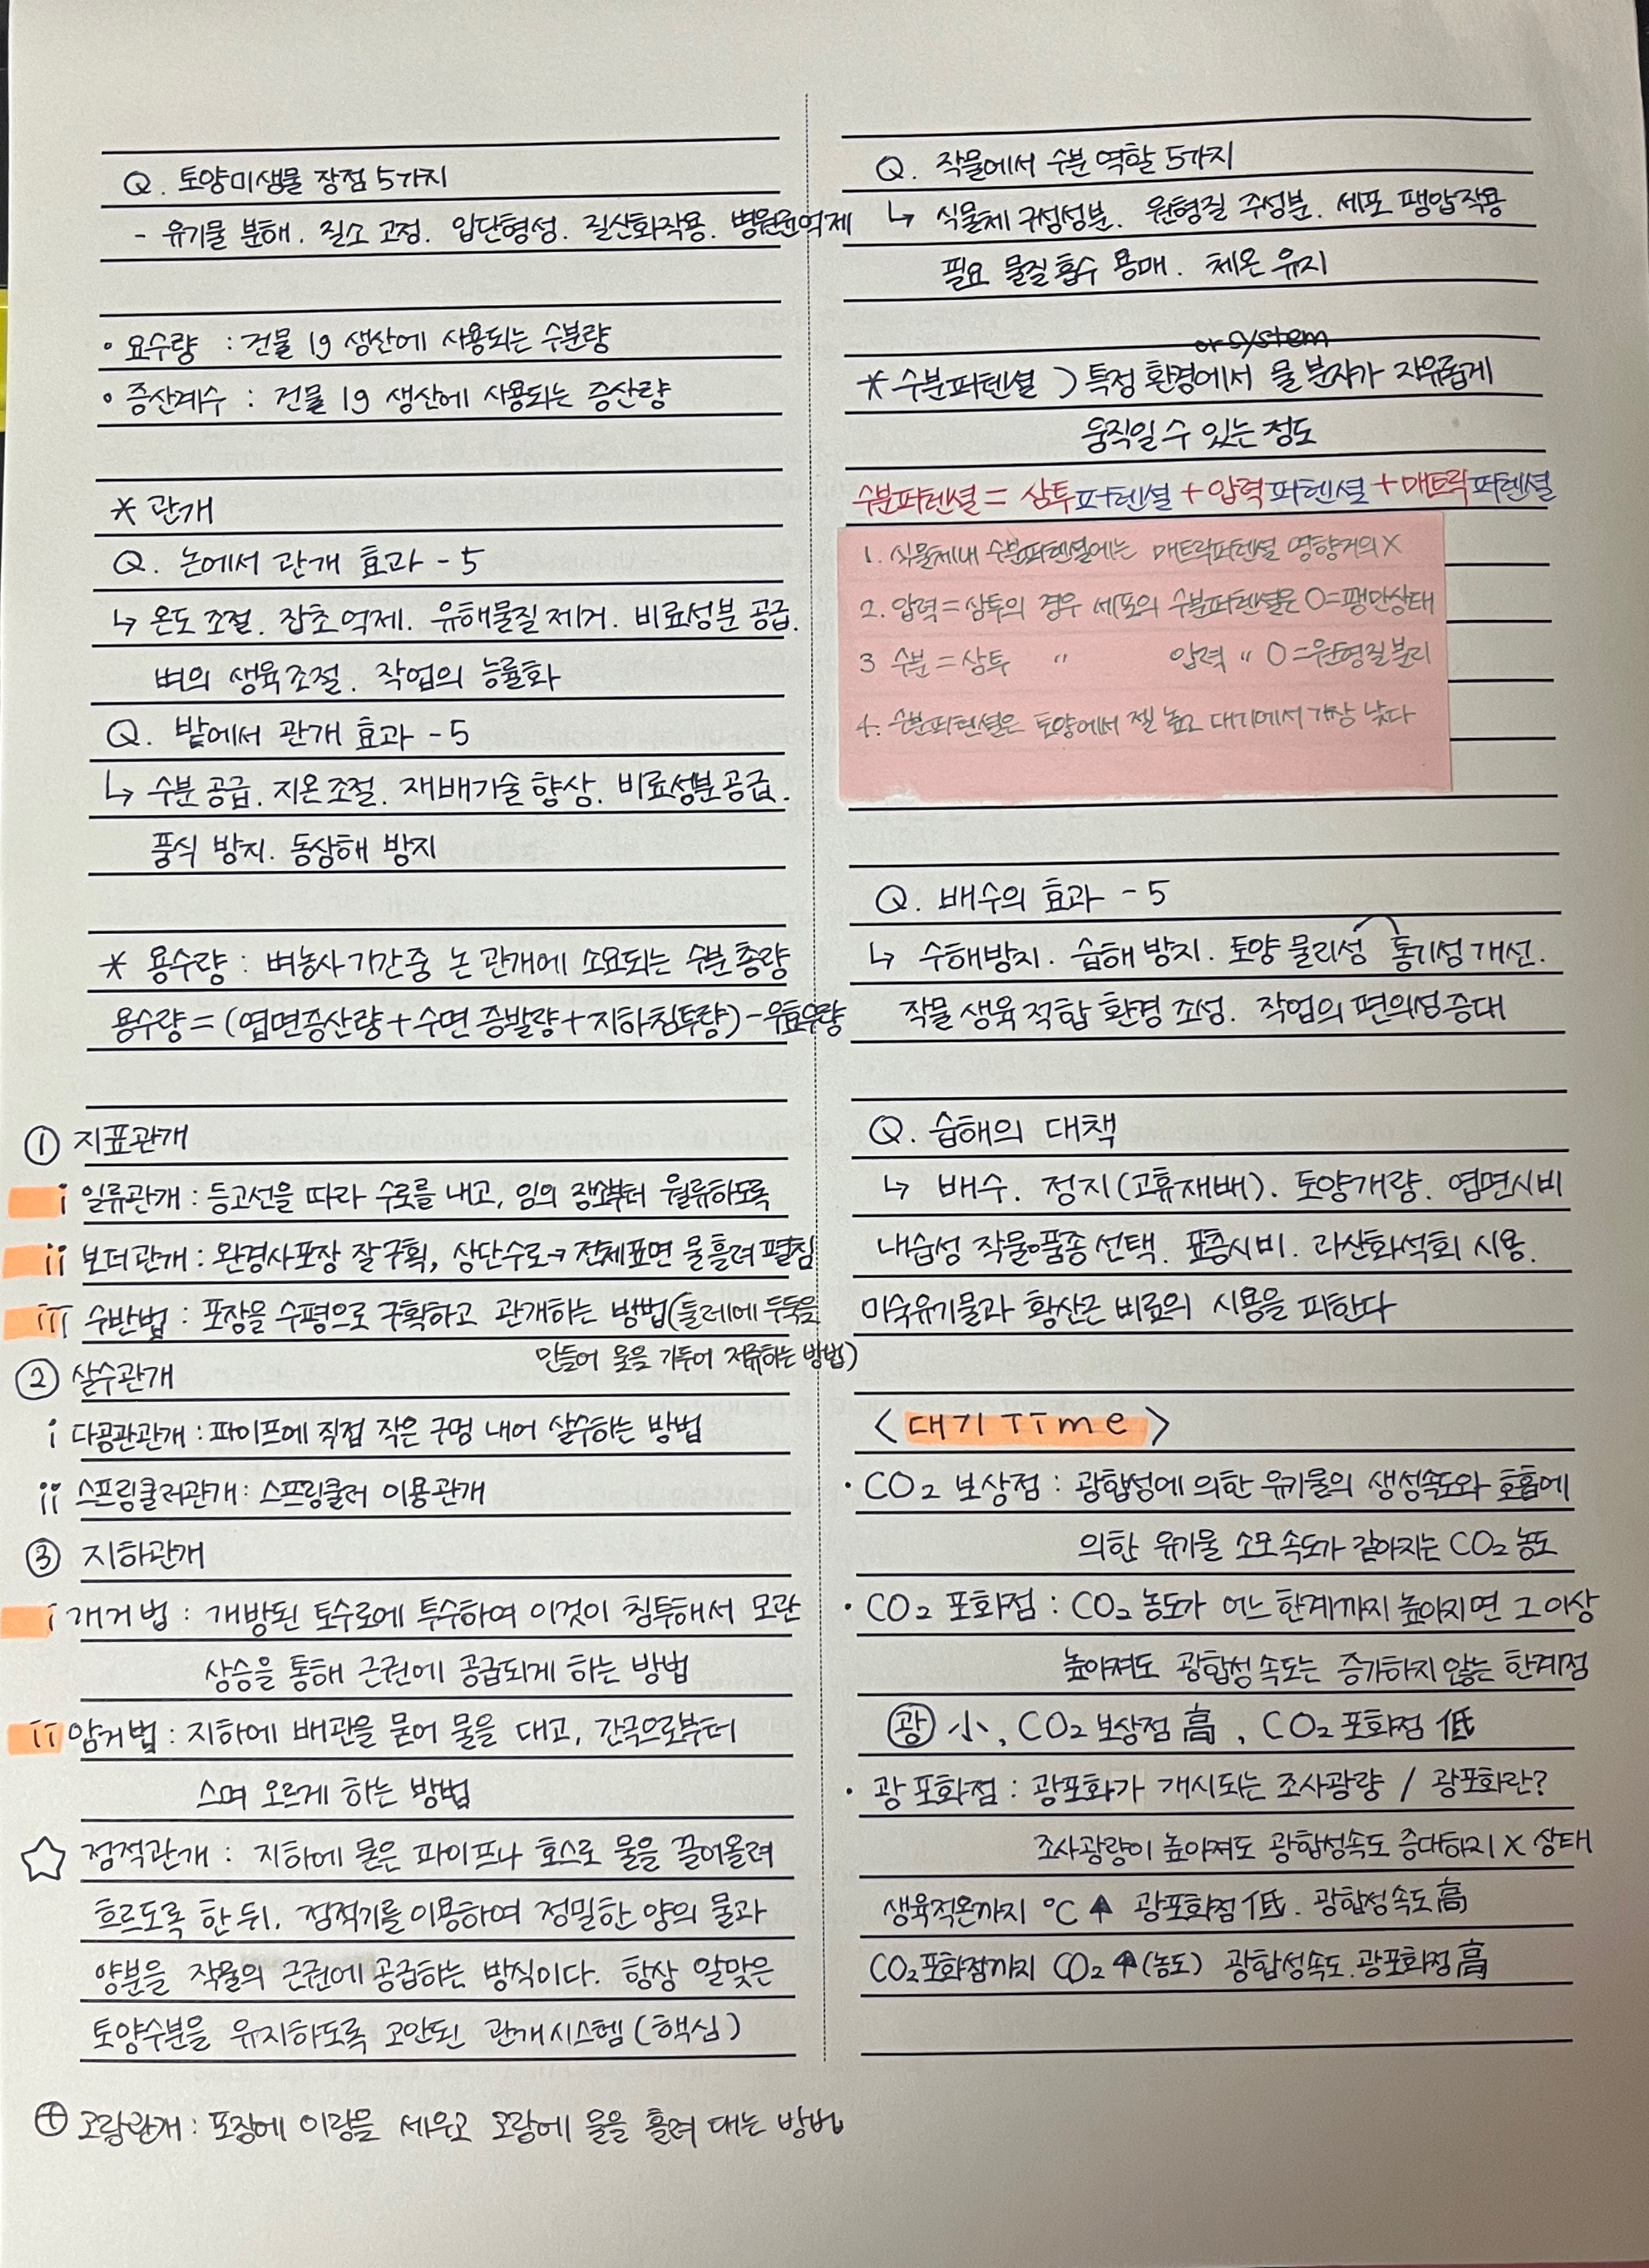 Q. 토양미생물 장점 5가지
- 유기물 분해. 질소 고정. 입단형성. 질산화작용. 병원균억제
• 요수량 : 건물 1g 생산에 사용되는 수분량
• 증산계수 : 건물 1g 생산에 사용되는 증산량
* 관개
Q. 논에서 관개 효과 - 5
↳ 온도 조절. 잡초 억제. 유해물질 제거. 비료성분 공급.
벼의 생육조절. 작업의 능률화
Q. 밭에서 관개 효과 - 5
↳ 수분 공급. 지온조절. 재배기술 향상. 비료성분공급.
풍식 방지. 동상해 방지
* 용수량 : 벼농사기간중 논 관개에 소요되는 수분 총량
용수량 = (엽면증산량 + 수면 증발량 + 지하침투량) - 유효우량
① 지표관개
i 일류관개 : 등고선을 따라 수로를 내고, 임의 장소부터 월류하도록
ii 보더관개 : 완경사포장 잘구획, 상단수로→ 전체표면 물흘려 펼침
iii 수반법 : 포장을 수평으로 구획하고 관개하는 방법(둘레에 두둑을
만들어 물을 가두어 저류하는 방법)
② 살수관개
i 다공관관개 : 파이프에 직접 작은 구멍 내어 살수하는 방법
ii 스프링클러관개 : 스프링클러 이용관개
③ 지하관개
i 개거법 : 개방된 토수로에 투수하여 이것이 침투해서 모관
상승을 통해 근권에 공급되게 하는 방법
ii 암거법 : 지하에 배관을 묻어 물을 대고, 간극으로부터
스며 오르게 하는 방법
☆ 점적관개 : 지하에 묻은 파이프나 호스로 물을 끌어올려
흐르도록 한 뒤, 점적기를 이용하여 정밀한 양의 물과
양분을 작물의 근권에 공급하는 방식이다. 항상 알맞은
토양수분을 유지하도록 고안된 관개시스템(핵심)
⊕ 고랑관개 : 포장에 이랑을 세우고 고랑에 물을 흘려 대는 방법
Q. 작물에서 수분 역할 5가지
↳ 식물체 구성성분. 원형질 주성분. 세포 팽압작용
필요 물질 흡수 용매. 체온 유지
or system
* 수분퍼텐셜 ) 특정 환경에서 물 분자가 자유롭게
움직일 수 있는 정도
수분퍼텐셜 = 삼투퍼텐셜 + 압력퍼텐셜 + 매트릭퍼텐셜
1. 식물체내 수분퍼텐셜에는 매트릭퍼텐셜 영향거의X
2. 압력=삼투의 경우 세포의 수분퍼텐셜은 0=팽만상태
3 수분=삼투 〃 압력 〃 0=원형질분리
4. 수분퍼텐셜은 토양에서 젤 높고 대기에서 가장 낮다
Q. 배수의 효과 - 5
↳ 수해방지. 습해 방지. 토양 물리성 통기성 개선.
작물 생육 적합 환경 조성. 작업의 편의성증대
Q. 습해의 대책
↳ 배수. 정지(고휴재배). 토양개량. 엽면시비
내습성 작물•품종선택. 표층시비. 과산화석회 시용.
미숙유기물과 황산근 비료의 시용을 피한다
< 대기 Time >
• CO₂ 보상점 : 광합성에 의한 유기물의 생성속도와 호흡에
의한 유기물 소모속도가 같아지는 CO₂ 농도
• CO₂ 포화점 : CO₂ 농도가 어느 한계까지 높아지면 그이상
높아져도 광합성 속도는 증가하지 않는 한계점
광 小, CO₂ 보상점 高, CO₂ 포화점 低
• 광 포화점 : 광포화가 개시되는 조사광량 / 광포화란?
조사광량이 높아져도 광합성속도 증대하지 X 상태
생육적온까지 ℃ ↑ 광포화점 低. 광합성속도 高
CO₂포화점까지 CO₂ ↑(농도) 광합성속도. 광포화점 高